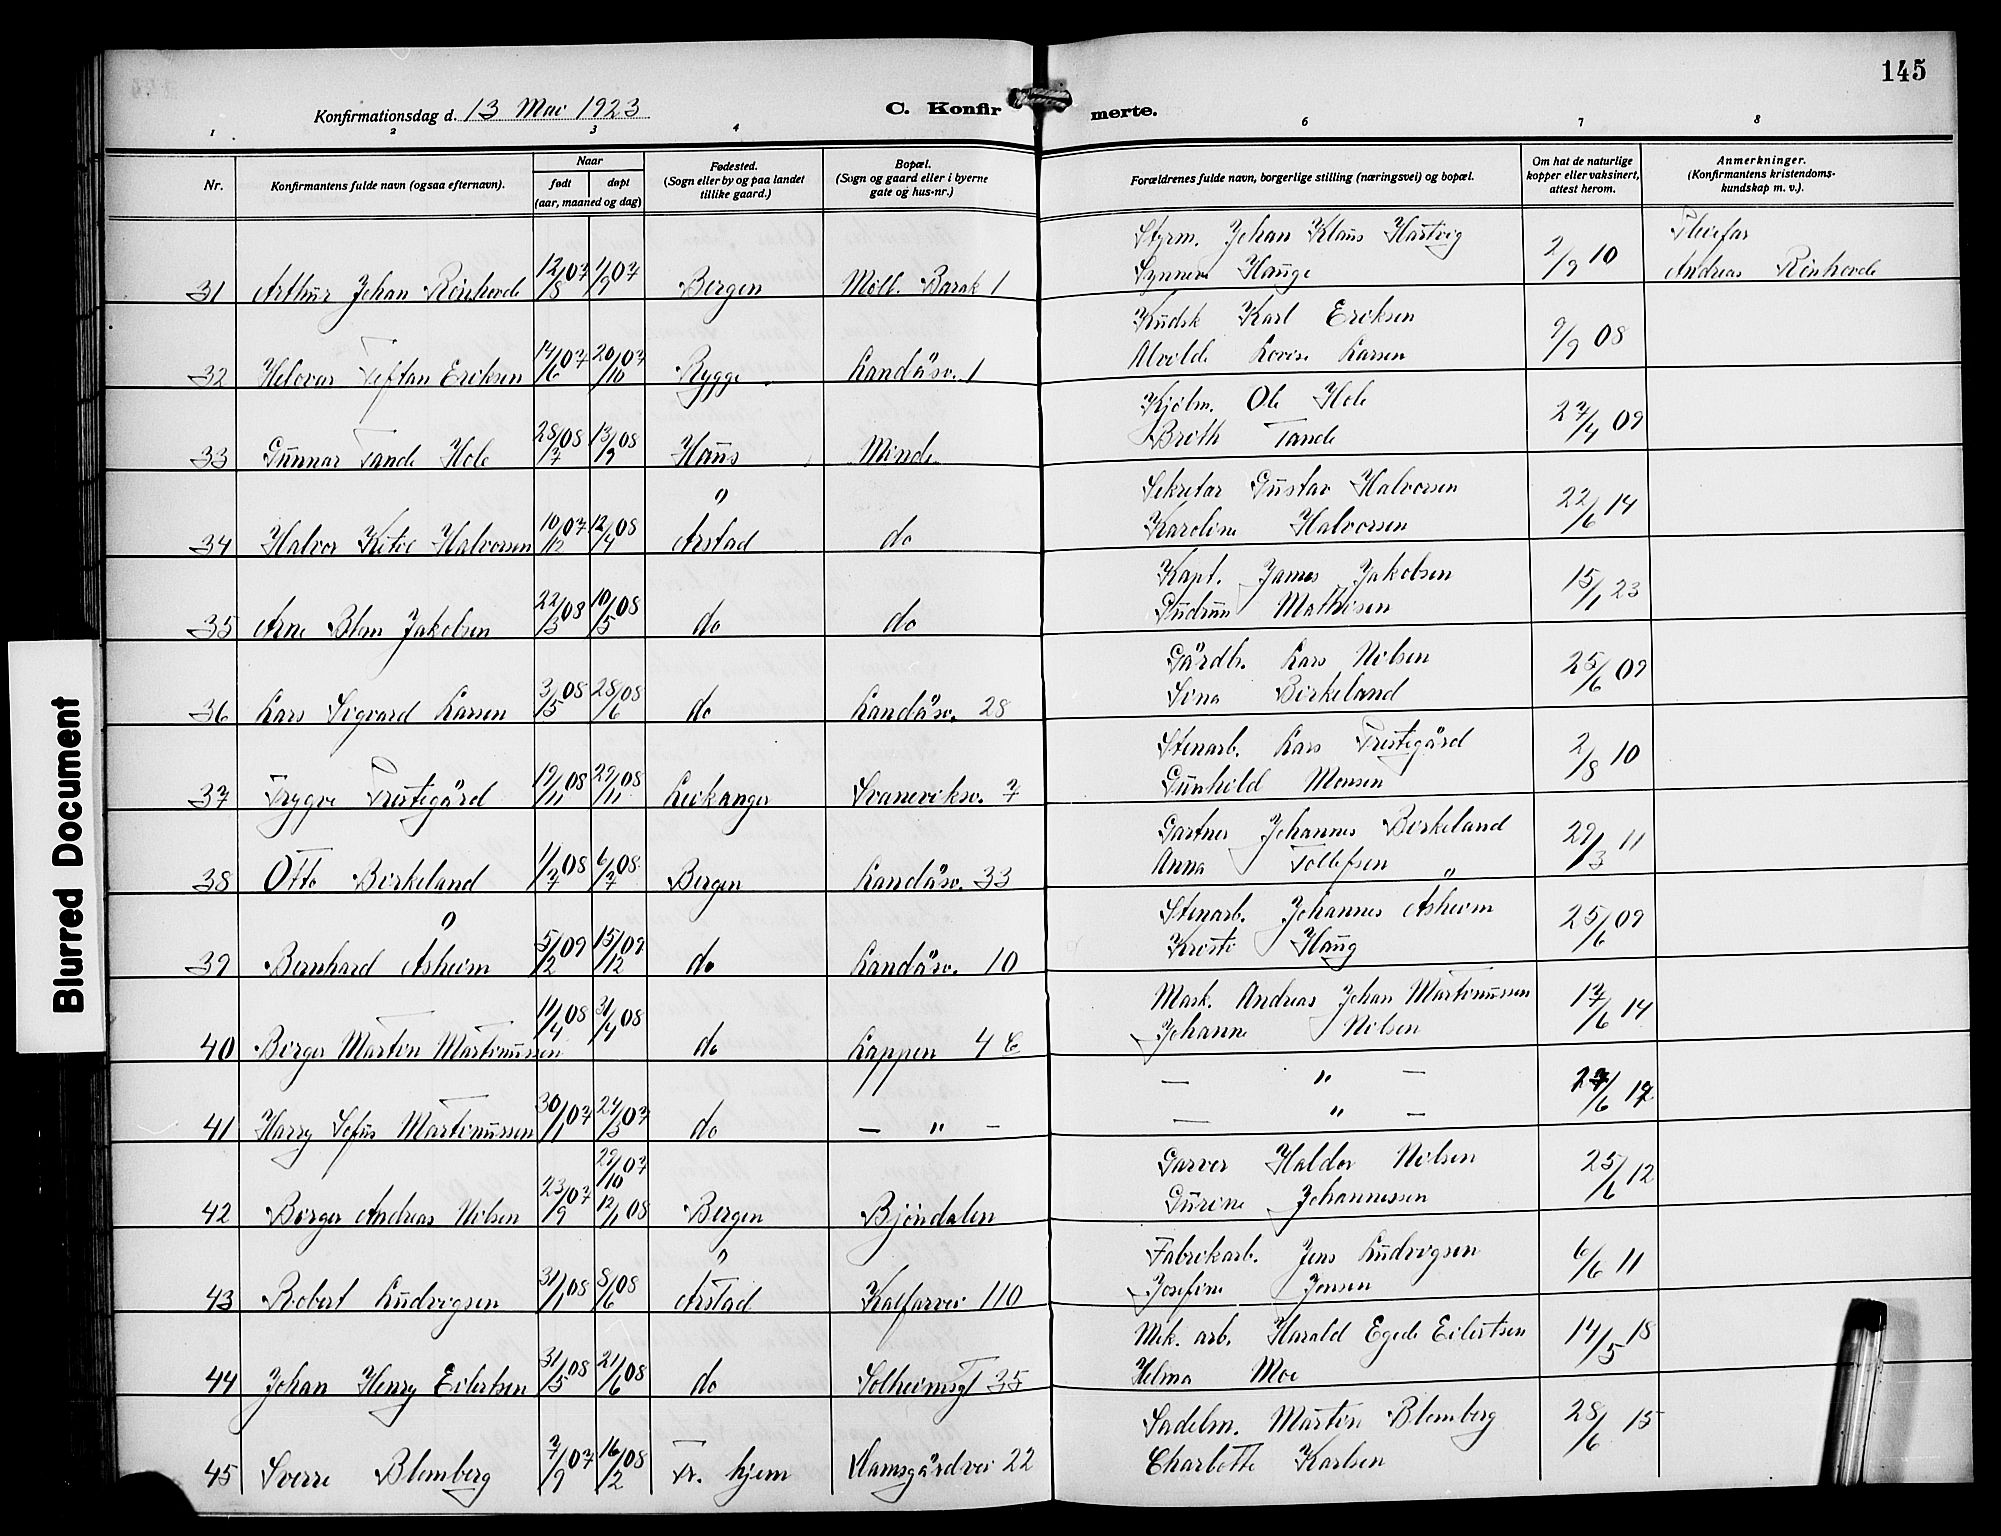 145
Konfirmationsdag d. 13 Mai 1923
C. Konfirmerte.
1 2 3 4 6 7 8
Nr.
Konfirmantens fulde navn (ogsaa efternavn).
Naar
født døpt
(aar, maaned og dag)
Fødested.
(Sogn eller by og paa landet
tillike gaard.)
Bopæl.
(Sogn og gaard eller i byerne
gate og hus-nr.)
Forældrenes fulde navn, borgerlige stilling (næringsvei) og bopæl.
Om hat de naturlige
kopper eller vaksinert,
attest herom.
Anmerkninger.
(Konfirmantens kristendoms-
kundskap m. v.).
Styrm. Johan Klaus Hartvig 2/9 10 Pleiefar
31 Arthur Johan Rönhovde 12/8 07 1/9 07 Bergen Möll. Barak 1 Synneve Hauge Andreas Rönhovde
Kudsk Karl Eriksen 9/9 08
32 Helovar Teftan Eriksen 14/6 07 20/10 07 Rygge Landåsv. 1 Alvilde Lovise Larsen
Kjölm. Ole Hole 27/4 09
33 Gunnar Tande Hole 28/7 08 13/9 08 Haus Minde Brith Tande
Sekretær Gustav Halvorsen 22/6 14
34 Halvor Halvorsen 10/12 07 12/4 08 Årstad do Karoline Halvorsen
Kapt. James Jakobsen 15/1 23
35 Arne Blom Jakobsen 22/3 08 10/5 08 do do Gudrun Mathisen
Gårdb. Lars Nilsen 25/6 09
36 Lars Sigvard Larsen 3/5 08 28/6 08 do Landåsv. 28 Sina Birkeland
Stenarb. Lars Prestegård 2/8 10
37 Trygve Prestegård 19/11 08 29/11 08 Leikanger Svaneviksv. 7 Gunhild Monsen
Gartner Johannes Birkeland 29/3 11
38 Otto Birkeland 1/7 08 6/7 08 Bergen Landåsv. 33 Anna Tollefsen
Stenarb. Johannes Åsheim 25/6 09
39 Bernhard Åsheim 5/2 09 15/12 09 do Landåsv. 10 Kristi Haug
Mask. Andreas Johan Martinussen 17/6 14
40 Birger Martin Martinussen 11/4 08 31/4 08 do Lappen 4 E Johanne Nilsen
— " —
41 Harry Sofus Martinussen 30/1 07 24/3 07 do — " — — " —
29/10 07 Garver Haldor Nilsen 25/6 12
42 Birger Andreas Nilsen 23/9 07 12/1 08 Bergen Bjöndalen Gurine Johannessen
Fabrikarb. Jens Ludvigsen 6/6 11
43 Robert Ludvigsen 31/1 08 8/6 08 Årstad Kalfarvei 110 Josefine Jensen
Mek. arb. Harald Egede Eilertsen 14/5 18
44 Johan Henry Eilertsen 31/5 08 21/6 08 do Solheimsgt 35 Helma Moe
Sadelm. Martin Blomberg 28/6 15
45 Sverre Blomberg 7/9 07 16/2 08 Tr. hjem Damsgårdvei 22 Charlotte Karlsen
Blurred Document